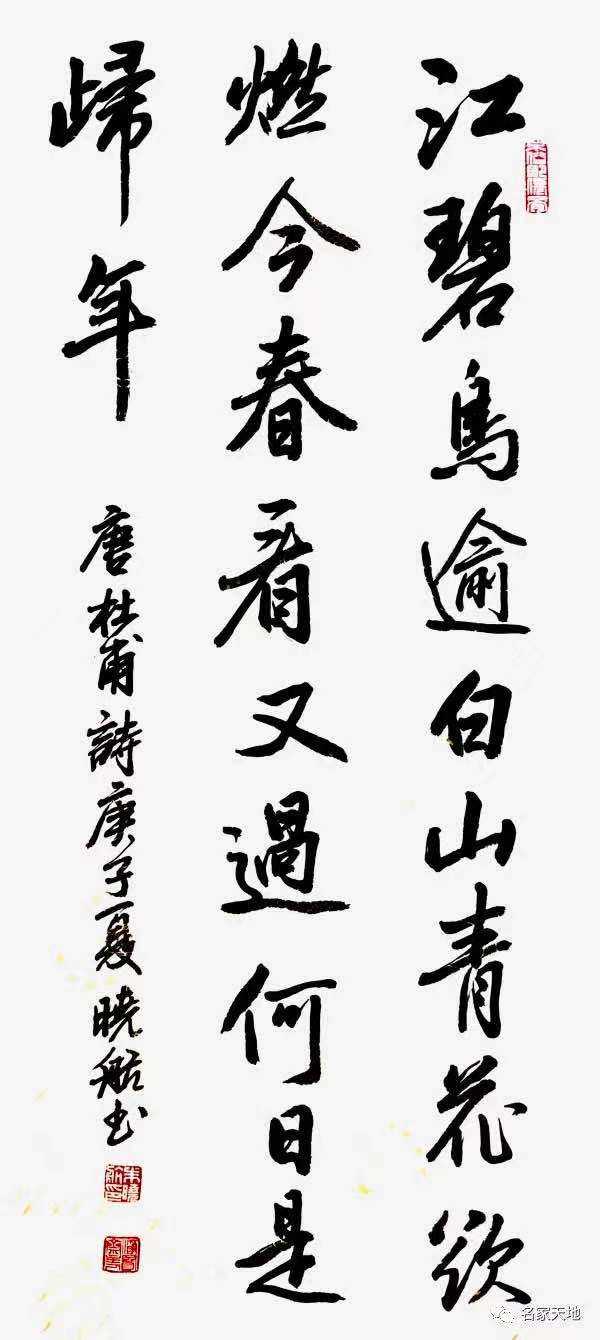 江碧鳥逾白山青花欲
燃今春看又過何日是
歸年
唐杜甫詩庚子夏曉船书
名家天地